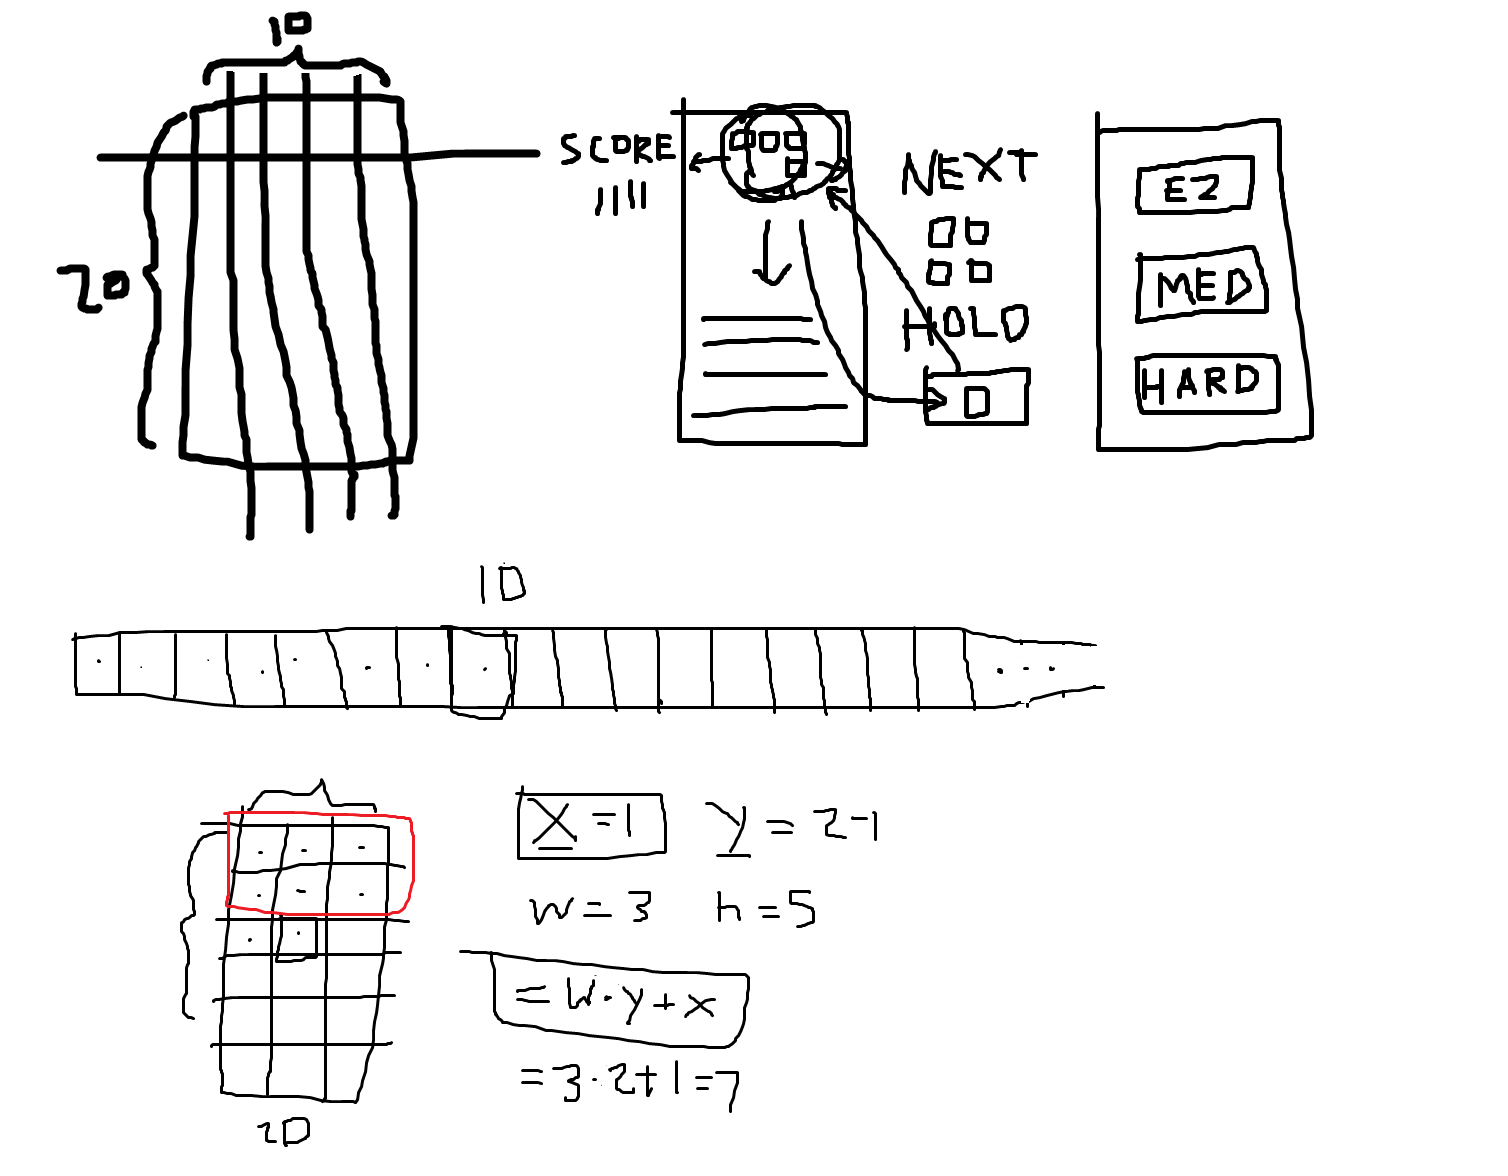 10
20
SCORE
1111
NEXT
HOLD
EZ
MED
HARD
1D
X = 1
y = 2-1
w = 3
h = 5
= W · y + x
= 3 · 2 + 1 = 7
2D